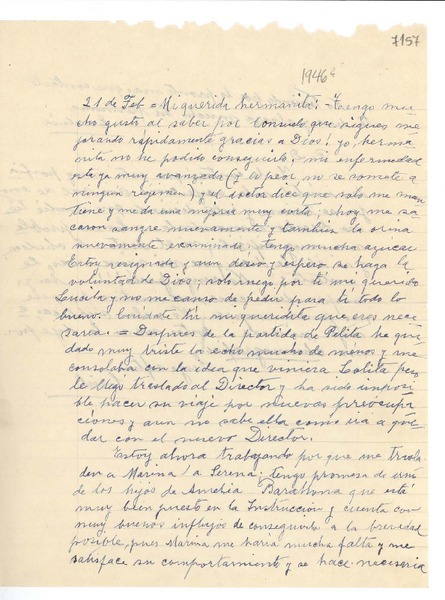 7157
1946
21 de Feb = Mi querida hermanita: Tengo mu-
cho gusto al saber por Consuelo que sigues me-
jorando rápidamente gracias a Dios! yo, herma
nita no he podido conseguirlo; mi enfermedad
esta ya muy avanzada (y lo peor no se somete a
ningun regimen) y el doctor dice que solo me man
tiene y me da una mejoria muy corta; hoy me sa
caron sangre nuevamente y tambien la orina
nuevamente examinada; tengo mucha azucar
Estoy resignada y aun deseo y espero se haga la
voluntad de Dios, solo ruego por ti mi querida
Lucila y no me canso de pedir para ti todo lo
bueno. Cuidate tu mi queridita que eres nece
saria. = Despues de la partida de Pelita he que
dado muy triste la echo mucho de menos y me
consolaba con la idea que viniera Lolita pero
le llego traslado al Director y ha sido imposi
ble hacer su viaje por nuevas preocupa
ciones y aun no sabe ella como irá a que
dar con el nuevo Director.
Estoy ahora trabajando por que me trasla
den a Marina a Serena; tengo promesa de uno
de los hijos de Amelia Barahona que está
muy bien puesto en la Instrucción y cuenta con
muy buenos influjos de conseguirlo a la brevedad
posible, pues Marina me haria mucha falta y me
satisface su comportamiento y se hace necesaria